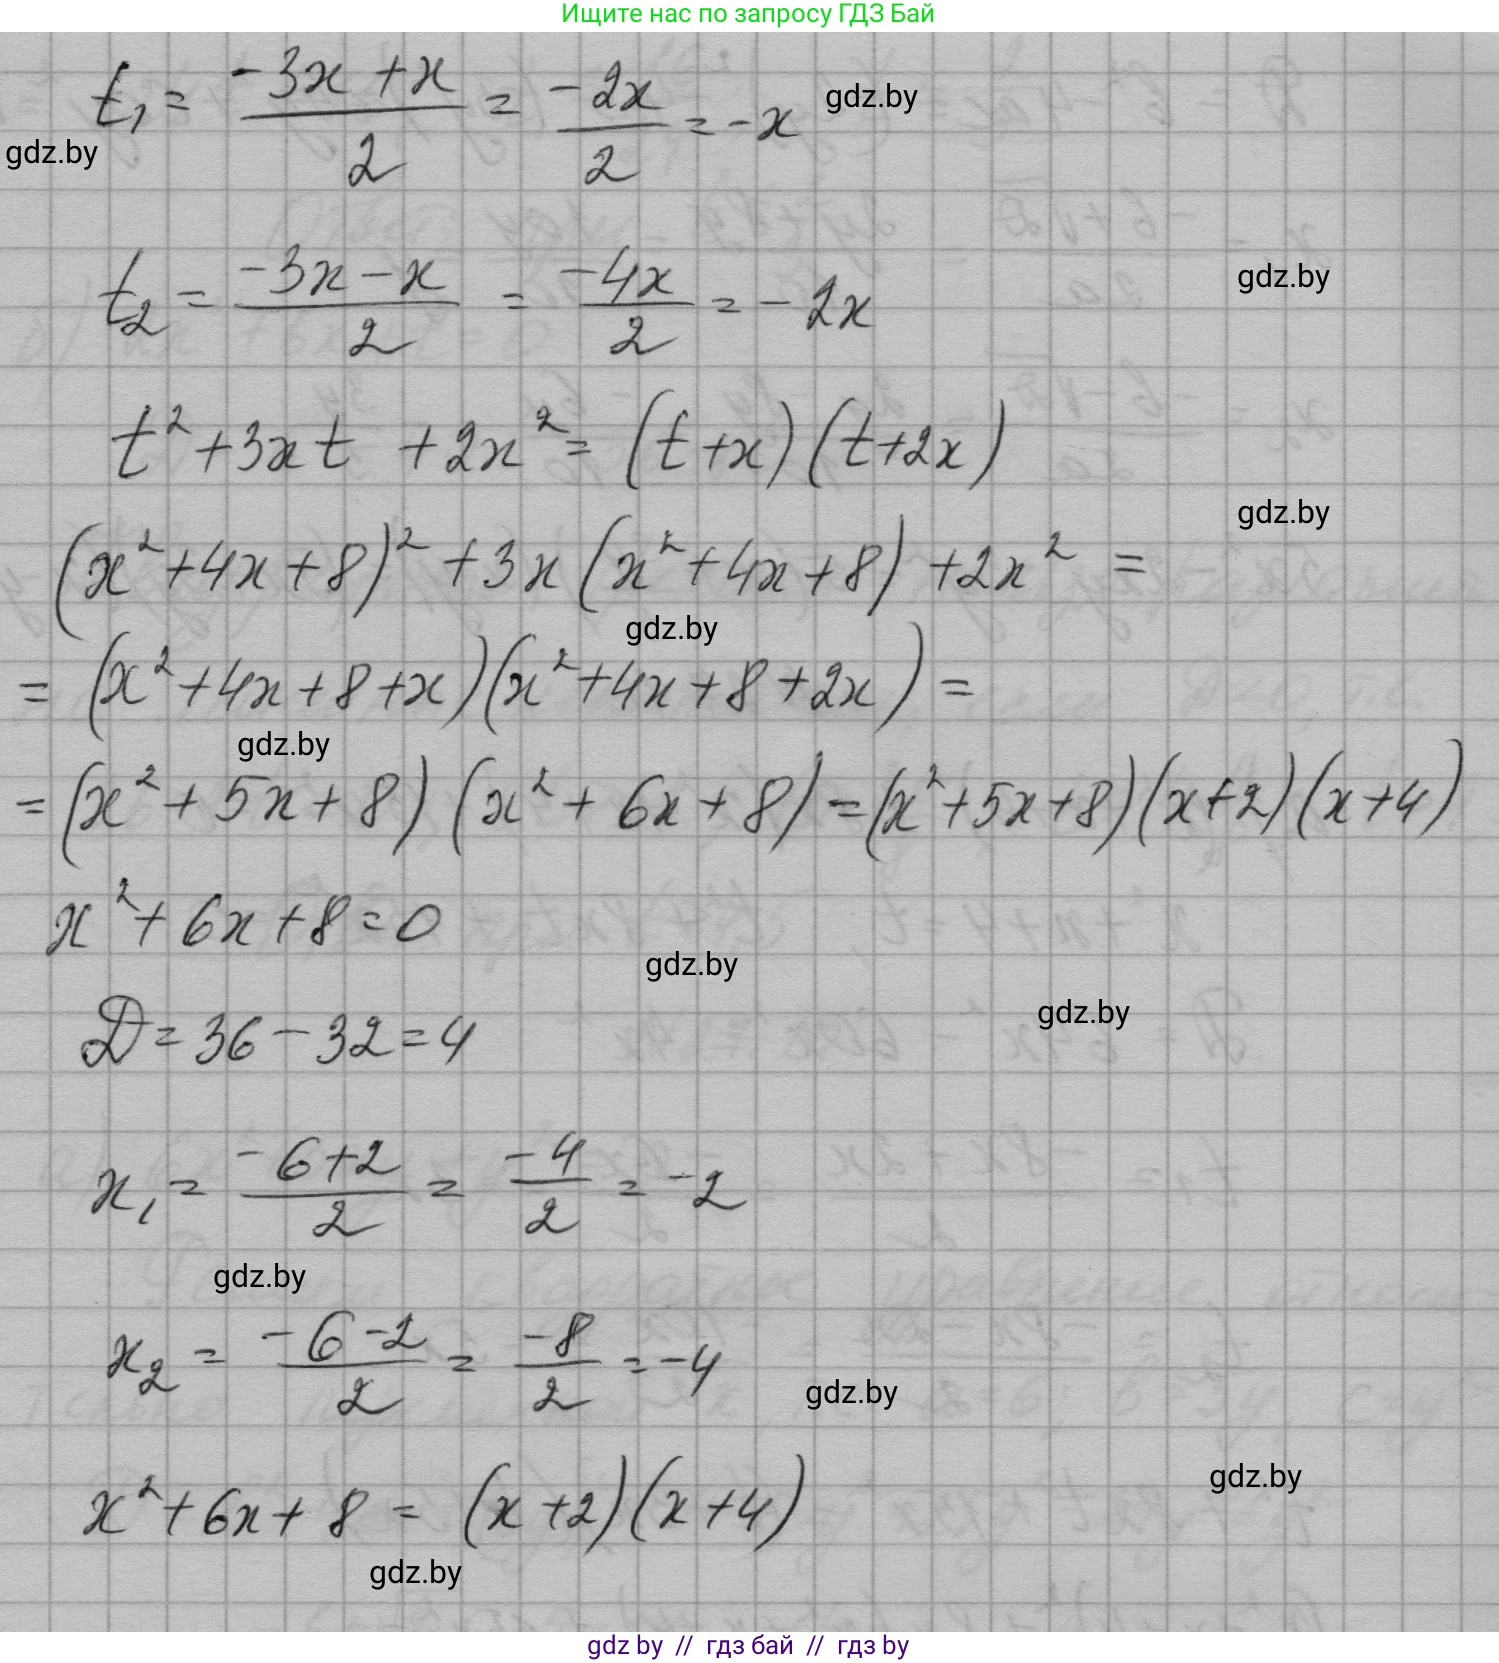 Ищите нас по запросу ГДЗ Бай
t₁ = (-3x + x)/2 = -2x/2 = -x
gdz.by
gdz.by
t₂ = (-3x - x)/2 = -4x/2 = -2x
gdz.by
t² + 3xt + 2x² = (t + x)(t + 2x)
gdz.by
(x² + 4x + 8)² + 3x(x² + 4x + 8) + 2x² =
gdz.by
= (x² + 4x + 8 + x)(x² + 4x + 8 + 2x) =
gdz.by
= (x² + 5x + 8)(x² + 6x + 8) = (x² + 5x + 8)(x + 2)(x + 4)
x² + 6x + 8 = 0
gdz.by
gdz.by
D = 36 - 32 = 4
x₁ = (-6 + 2)/2 = -4/2 = -2
gdz.by
x₂ = (-6 - 2)/2 = -8/2 = -4
gdz.by
gdz.by
x² + 6x + 8 = (x + 2)(x + 4)
gdz.by
gdz by // гдз бай // гдз by